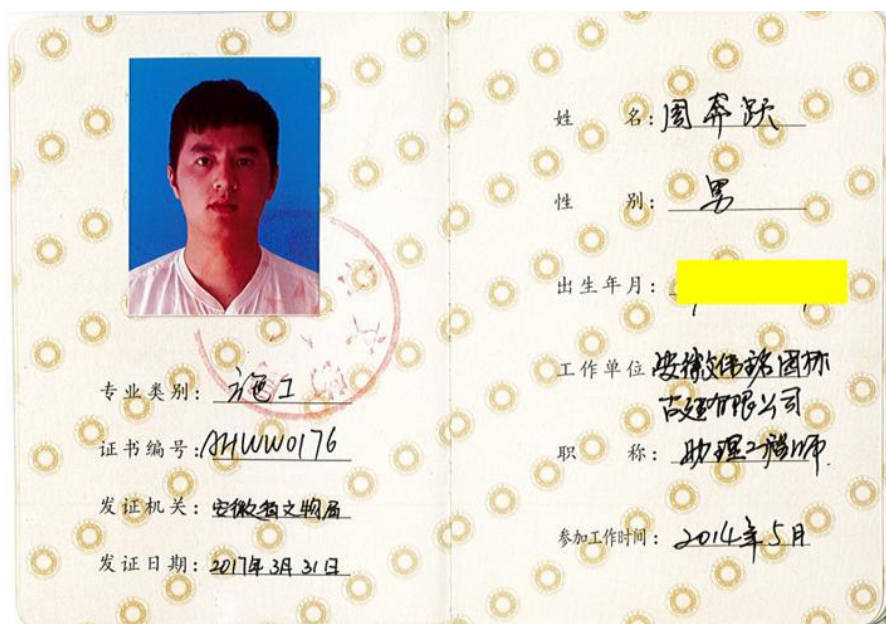 专业类别：施工
证书编号：AHWW0176
发证机关：安徽省文物局
发证日期：2017年3月31日
姓 名：周奔跃
性 别：男
出生年月：
工作单位 安徽伟铭园林
古建有限公司
职 称：助理工程师
参加工作时间：2014年5月